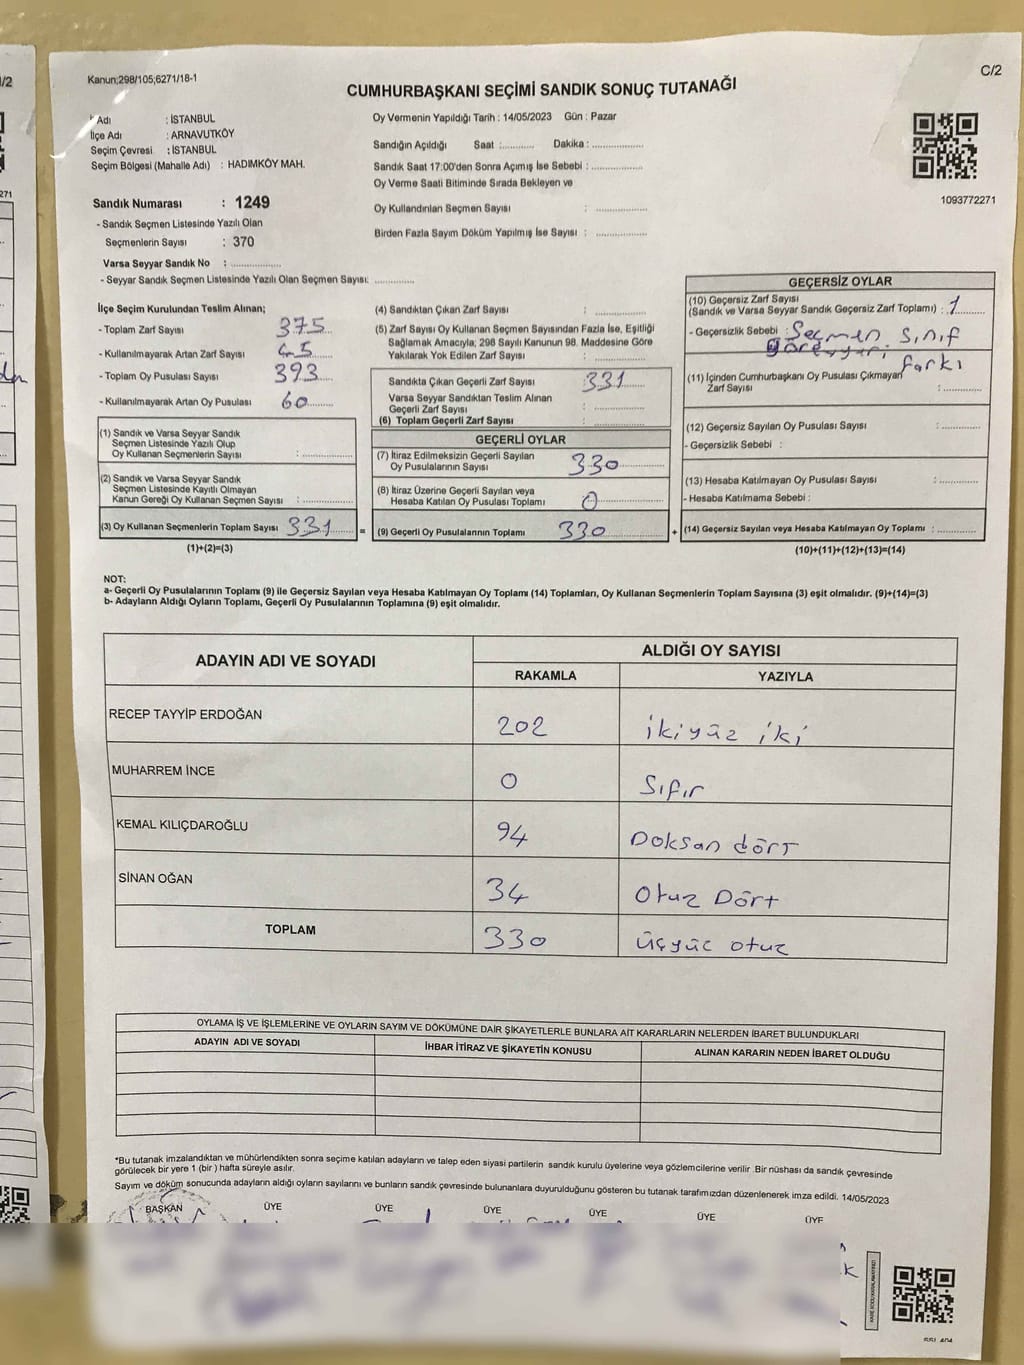 Kanun;298/105;6271/18-1
C/2
CUMHURBAŞKANI SEÇİMİ SANDIK SONUÇ TUTANAĞI
Adı : İSTANBUL
İlçe Adı : ARNAVUTKÖY
Seçim Çevresi : İSTANBUL
Seçim Bölgesi (Mahalle Adı) : HADIMKÖY MAH.
Oy Vermenin Yapıldığı Tarih : 14/05/2023 Gün : Pazar
Sandığın Açıldığı Saat :.......... Dakika : ...............
Sandık Saat 17:00'den Sonra Açımış İse Sebebi : ...............
Oy Verme Saati Bitiminde Sırada Bekleyen ve
Oy Kullandırılan Seçmen Sayısı : ...............
Birden Fazla Sayım Döküm Yapılmış İse Sayısı : ...............
1093772271
Sandık Numarası : 1249
- Sandık Seçmen Listesinde Yazılı Olan
Seçmenlerin Sayısı : 370
Varsa Seyyar Sandık No : ...............
- Seyyar Sandık Seçmen Listesinde Yazılı Olan Seçmen Sayısı: ............
İlçe Seçim Kurulundan Teslim Alınan;
- Toplam Zarf Sayısı 375
- Kullanılmayarak Artan Zarf Sayısı 45
- Toplam Oy Pusulası Sayısı 393
- Kullanılmayarak Artan Oy Pusulası 60
(1) Sandık ve Varsa Seyyar Sandık
Seçmen Listesinde Yazılı Olup
Oy Kullanan Seçmenlerin Sayısı : ...............
(2) Sandık ve Varsa Seyyar Sandık
Seçmen Listesinde Kayıtlı Olmayan
Kanun Gereği Oy Kullanan Seçmen Sayısı : ...............
(3) Oy Kullanan Seçmenlerin Toplam Sayısı 331 =
(1)+(2)=(3)
(4) Sandıktan Çıkan Zarf Sayısı : ...............
(5) Zarf Sayısı Oy Kullanan Seçmen Sayısından Fazla İse, Eşitliği
Sağlamak Amacıyla, 298 Sayılı Kanunun 98. Maddesine Göre
Yakılarak Yok Edilen Zarf Sayısı : ...............
Sandıkta Çıkan Geçerli Zarf Sayısı : 331
Varsa Seyyar Sandıktan Teslim Alınan
Geçerli Zarf Sayısı : ...............
(6) Toplam Geçerli Zarf Sayısı : ...............
GEÇERLİ OYLAR
(7) İtiraz Edilmeksizin Geçerli Sayılan
Oy Pusulalarının Sayısı 330
(8) İtiraz Üzerine Geçerli Sayılan veya
Hesaba Katılan Oy Pusulası Toplamı 0
(9) Geçerli Oy Pusulalarının Toplamı 330 +
GEÇERSİZ OYLAR
(10) Geçersiz Zarf Sayısı
(Sandık ve Varsa Seyyar Sandık Geçersiz Zarf Toplamı) : 1
- Geçersizlik Sebebi : Seçmen sınıf
farkı
(11) İçinden Cumhurbaşkanı Oy Pusulası Çıkmayan
Zarf Sayısı : ...............
(12) Geçersiz Sayılan Oy Pusulası Sayısı : ...............
- Geçersizlik Sebebi :
(13) Hesaba Katılmayan Oy Pusulası Sayısı : ...............
- Hesaba Katılmama Sebebi :
(14) Geçersiz Sayılan veya Hesaba Katılmayan Oy Toplamı : ...............
(10)+(11)+(12)+(13)=(14)
NOT:
a- Geçerli Oy Pusulalarının Toplamı (9) ile Geçersiz Sayılan veya Hesaba Katılmayan Oy Toplamı (14) Toplamları, Oy Kullanan Seçmenlerin Toplam Sayısına (3) eşit olmalıdır. (9)+(14)=(3)
b- Adayların Aldığı Oyların Toplamı, Geçerli Oy Pusulalarının Toplamına (9) eşit olmalıdır.
ADAYIN ADI VE SOYADI ALDIĞI OY SAYISI
RAKAMLA YAZIYLA
RECEP TAYYİP ERDOĞAN 202 ikiyüz iki
MUHARREM İNCE 0 Sıfır
KEMAL KILIÇDAROĞLU 94 Doksan dört
SİNAN OĞAN 34 Otuz Dört
TOPLAM 330 üçyüc otuz
OYLAMA İŞ VE İŞLEMLERİNE VE OYLARIN SAYIM VE DÖKÜMÜNE DAİR ŞİKAYETLERLE BUNLARA AİT KARARLARIN NELERDEN İBARET BULUNDUKLARI
ADAYIN ADI VE SOYADI İHBAR İTİRAZ VE ŞİKAYETİN KONUSU ALINAN KARARIN NEDEN İBARET OLDUĞU
*Bu tutanak imzalandıktan ve mühürlendikten sonra seçime katılan adayların ve talep eden siyasi partilerin sandık kurulu üyelerine veya gözlemcilerine verilir .Bir nüshası da sandık çevresinde
görülecek bir yere 1 (bir ) hafta süreyle asılır.
Sayım ve döküm sonucunda adayların aldığı oyların sayılarını ve bunların sandık çevresinde bulunanlara duyurulduğunu gösteren bu tutanak tarafımızdan düzenlenerek imza edildi. 14/05/2023
BAŞKAN ÜYE ÜYE ÜYE ÜYE ÜYE ÜYE